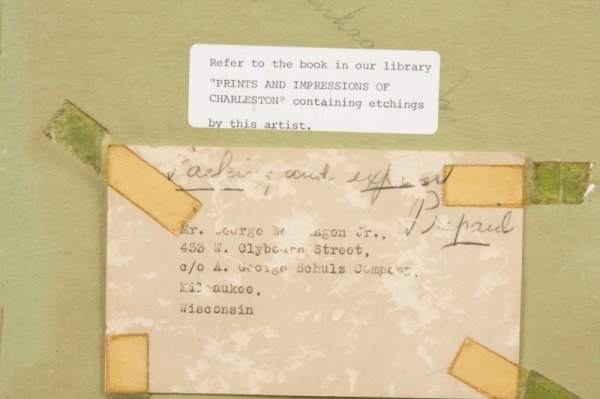 Refer to the book in our library
"PRINTS AND IMPRESSIONS OF
CHARLESTON" containing etchings
by this artist.
Packing and express
Prepaid
Mr. George Jr.,
433 W. Clybourn Street,
c/o A. George Schulz Company,
Milwaukee,
Wisconsin